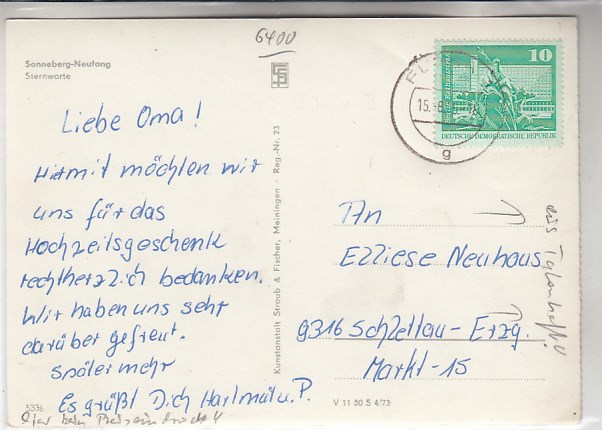 6400
Sonneberg-Neufang
Sternwarte
Liebe Oma!
Hiermit möchten wir
uns für das
Hochzeitsgeschenk
rechtherzlich bedanken.
Wir haben uns sehr
darüber gefreut.
Später mehr
Es grüßt Dich Hartmut u. P.
5336
Kunstanstalt Straub & Fischer, Meiningen · Reg.-Nr. 23
10
DEUTSCHE DEMOKRATISCHE REPUBLIK
15.-8
g
An
Elliese Neuhaus
9316 Schlettau-Erzg.
Markt-15
V 11 50 S 4/73